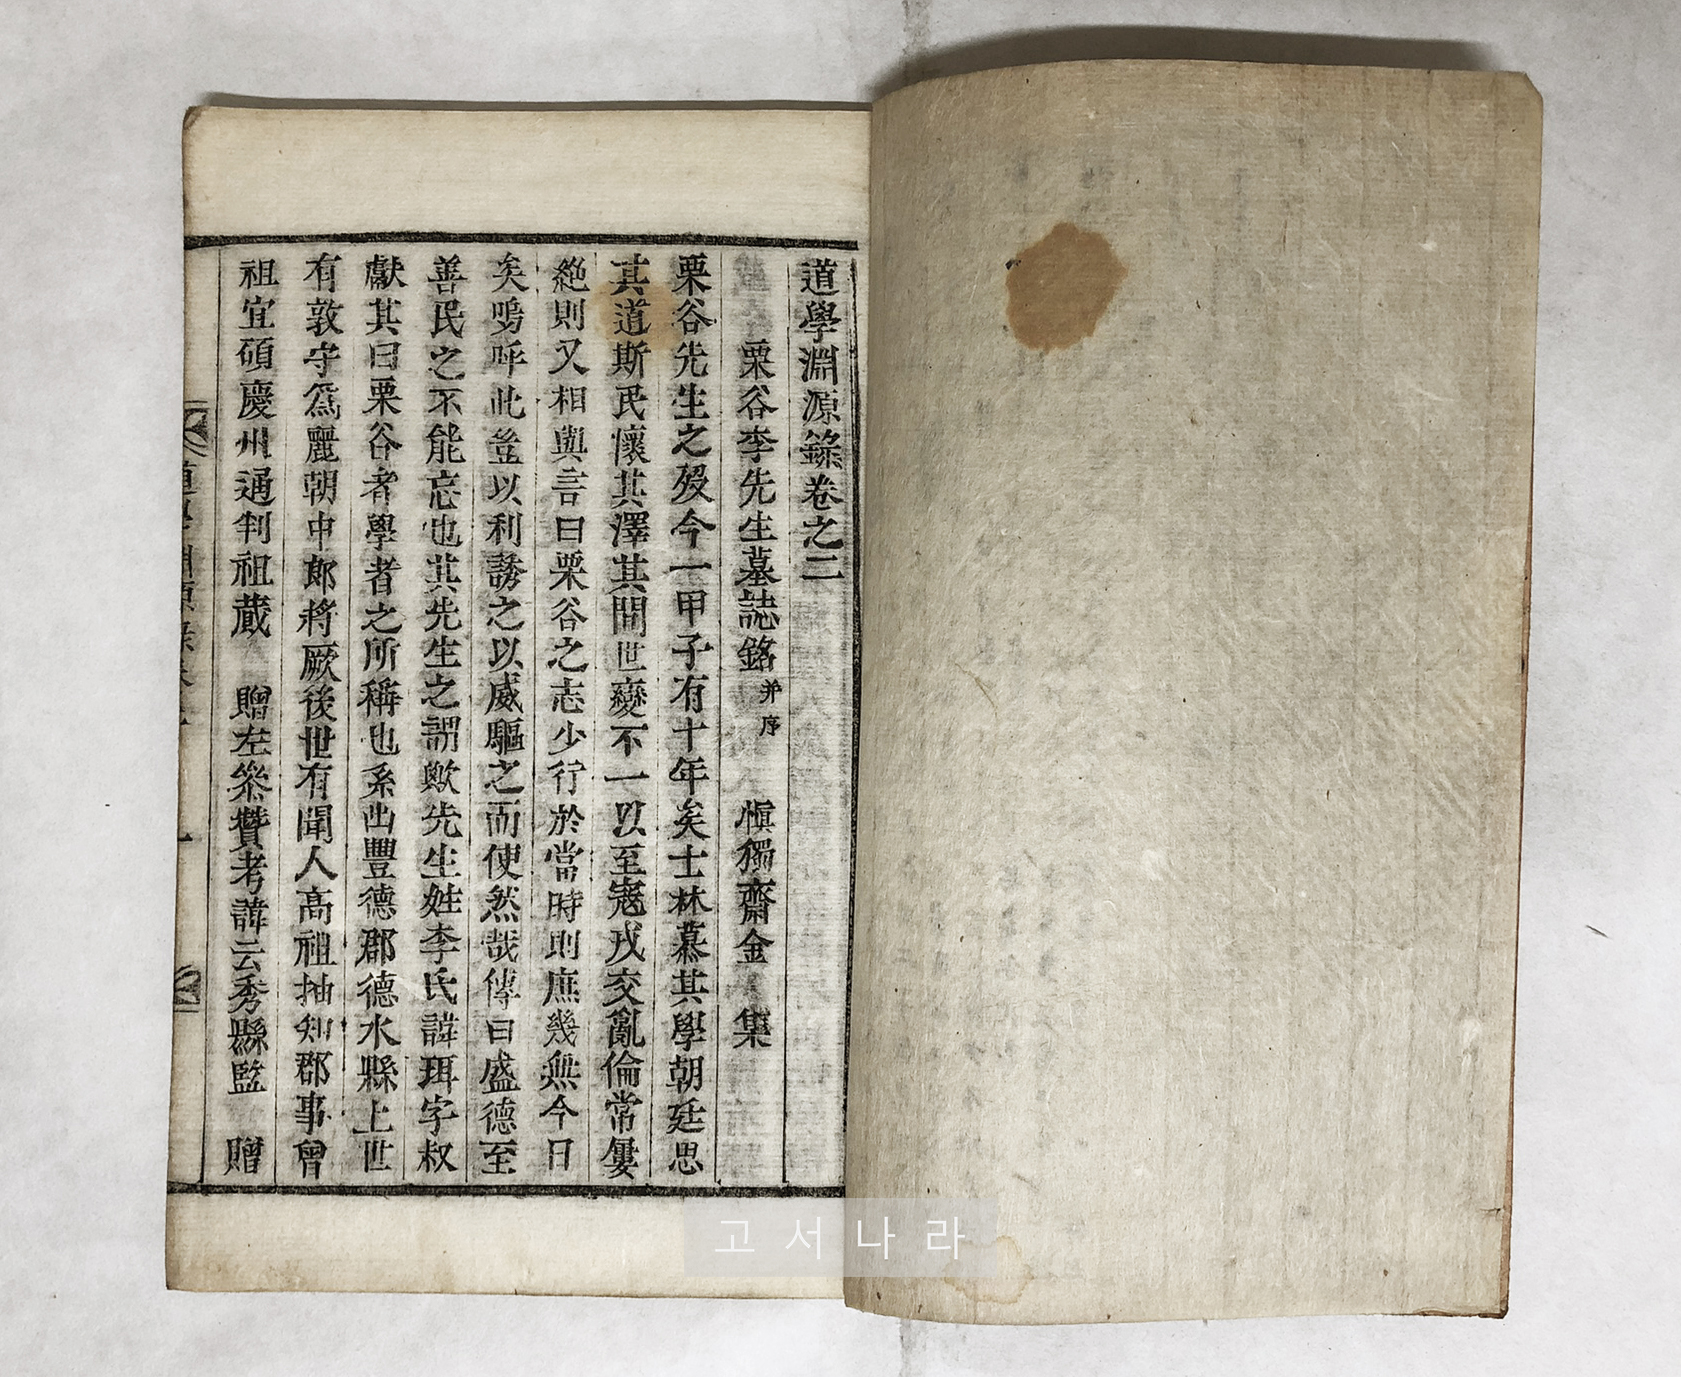 道學淵源錄卷之二
栗谷李先生墓誌銘 并序 愼獨齋金 集
栗谷先生之歿今一甲子有十年矣士林慕其學朝廷思
其道斯民懷其澤其間世變不一以至寇戎交亂倫常屢
絶則又相與言曰栗谷之志少行於當時則庶幾無今日
矣嗚呼此豈以利誘之以威驅之而使然哉傳曰盛德至
善民之不能忘也其先生之謂歟先生姓李氏諱珥字叔
獻其曰栗谷者學者之所稱也系出豐德郡德水縣上世
有敦守爲麗朝中郎將厥後世有聞人高祖抽知郡事曾
祖宜碩慶州通判祖蕆 贈左參贊考諱云秀縣監 贈
道學淵源錄卷二 一
고서나라